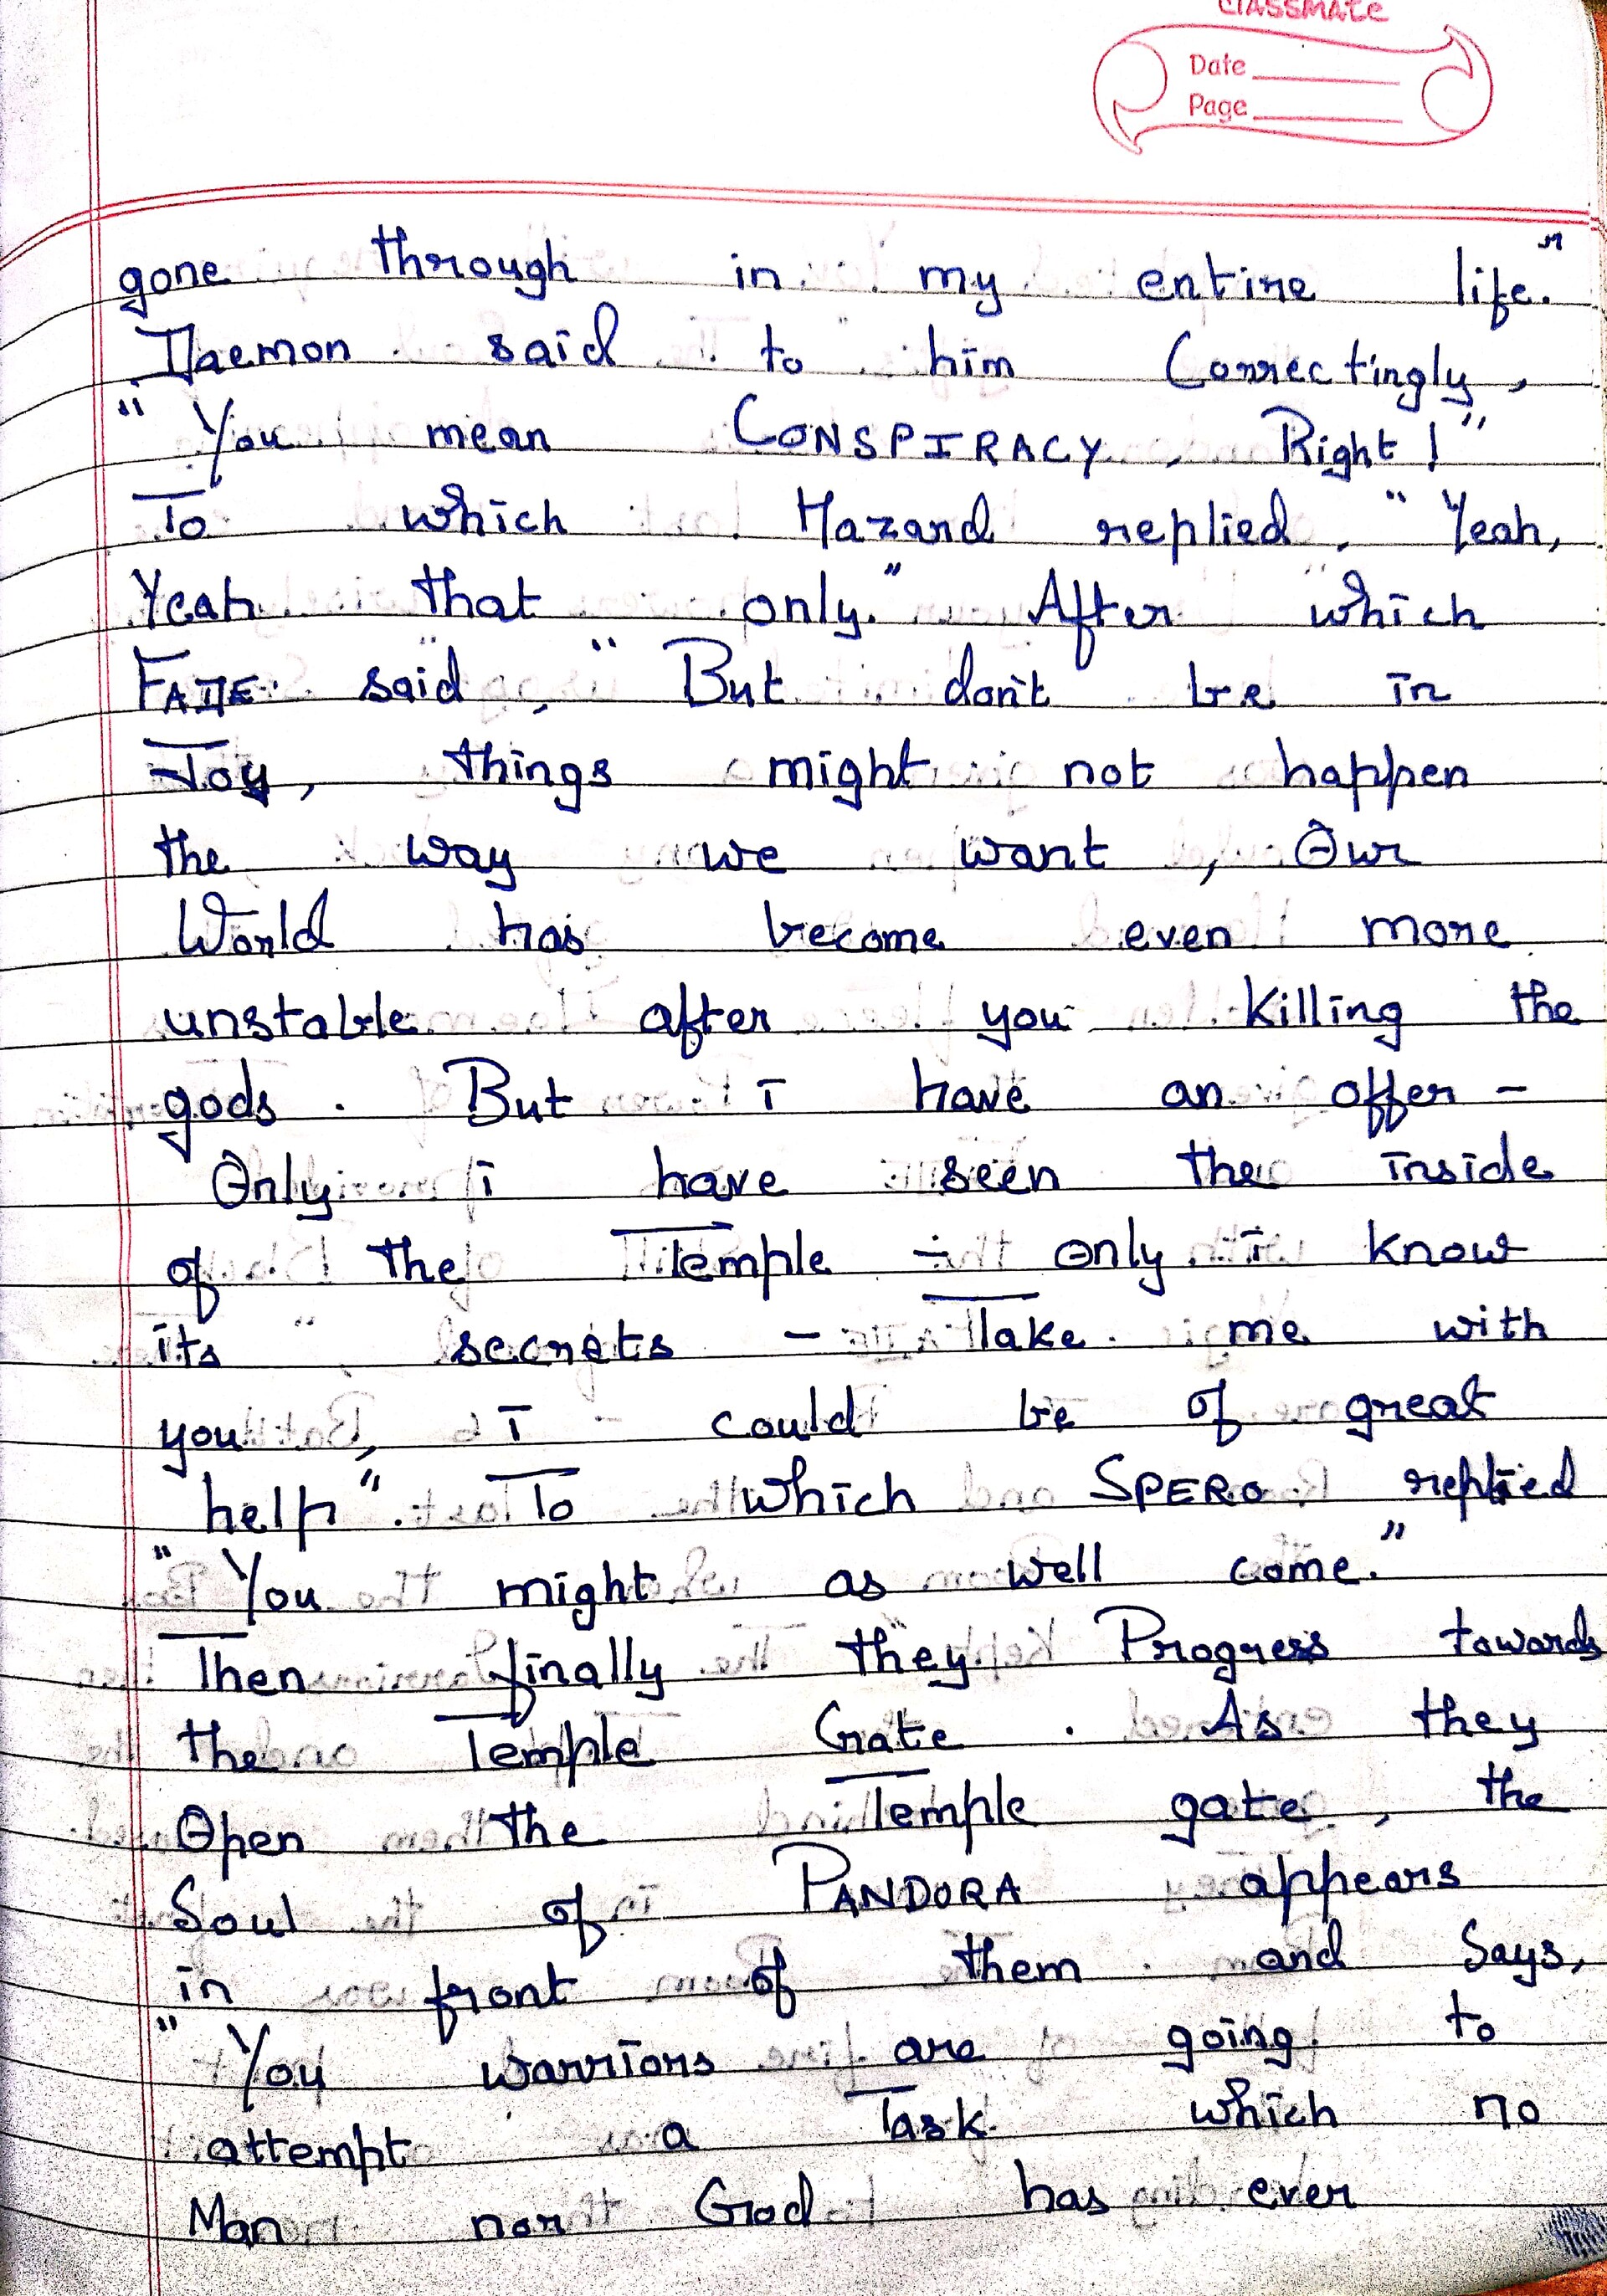 classmate
Date
Page
gone through in my entire life."
Daemon said to him Correctingly,
"You mean CONSPIRACY, Right!"
To which Hazard replied, "Yeah,
Yeah that only." After which
FADE said, "But don't be in
Joy, things might not happen
the way we want, Our
World has become even more
unstable after you killing the
gods. But i have an offer -
Only i have seen the inside
of the Temple - only i know
its secrets - Take me with
you, i could be of great
help". To which SPERO replied
"You might as well come."
Then finally they Progress towards
the Temple Gate. As they
Open the Temple gate, the
Soul of PANDORA appears
in front of them and Says,
"You warriors are going to
attempt a Task which no
Man nor God has ever